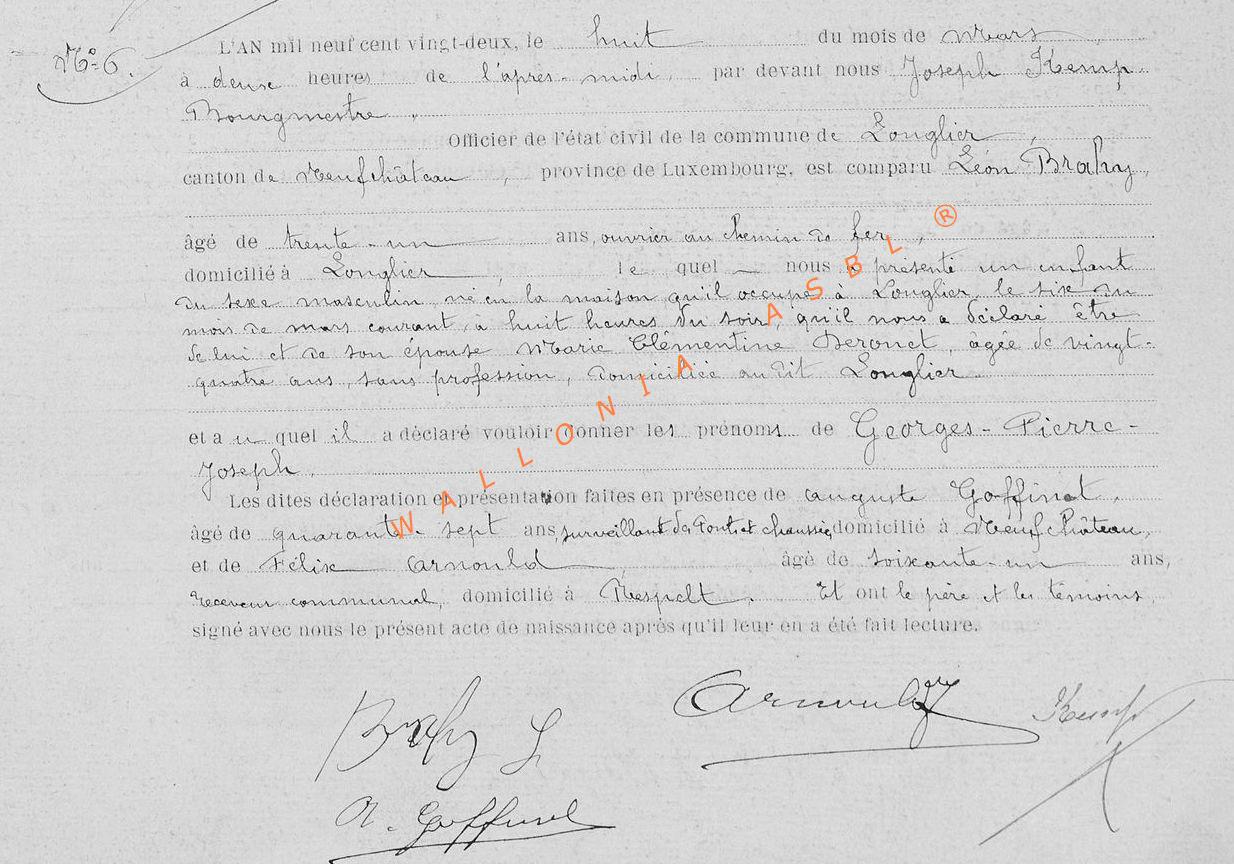 N° 6.
L'AN mil neuf cent vingt-deux, le huit du mois de Mars
à deux heures de l'après-midi, par devant nous Joseph Kemp
Bourgmestre,
Officier de l'état civil de la commune de Longlier,
canton de Neufchâteau, province de Luxembourg, est comparu Léon Brahy,
âgé de trente-un ans, ouvrier au chemin de fer,
domicilié à Longlier, le quel nous a présenté un enfant
du sexe masculin, né en la maison qu'il occupe à Longlier, le six du
mois de mars courant, à huit heures du soir, qu'il nous a déclaré être
de lui et de son épouse Marie Clémentine Deronet, agée de vingt-
quatre ans, sans profession, domiciliée au dit Longlier
et a u quel il a déclaré vouloir donner les prénoms de Georges-Pierre-
Joseph.
Les dites déclaration et présentation faites en présence de Auguste Goffinet,
âgé de quarante-sept ans, surveillant des Ponts et chaussées, domicilié à Neufchâteau,
et de Félix Arnould, âgé de soixante-un ans,
receveur communal, domicilié à Respelt. Et ont le père et les témoins
signé avec nous le présent acte de naissance après qu'il leur en a été fait lecture.
Brahy L
Arnould
Kemp
A. Goffinet
WALLONIA ASBL ®